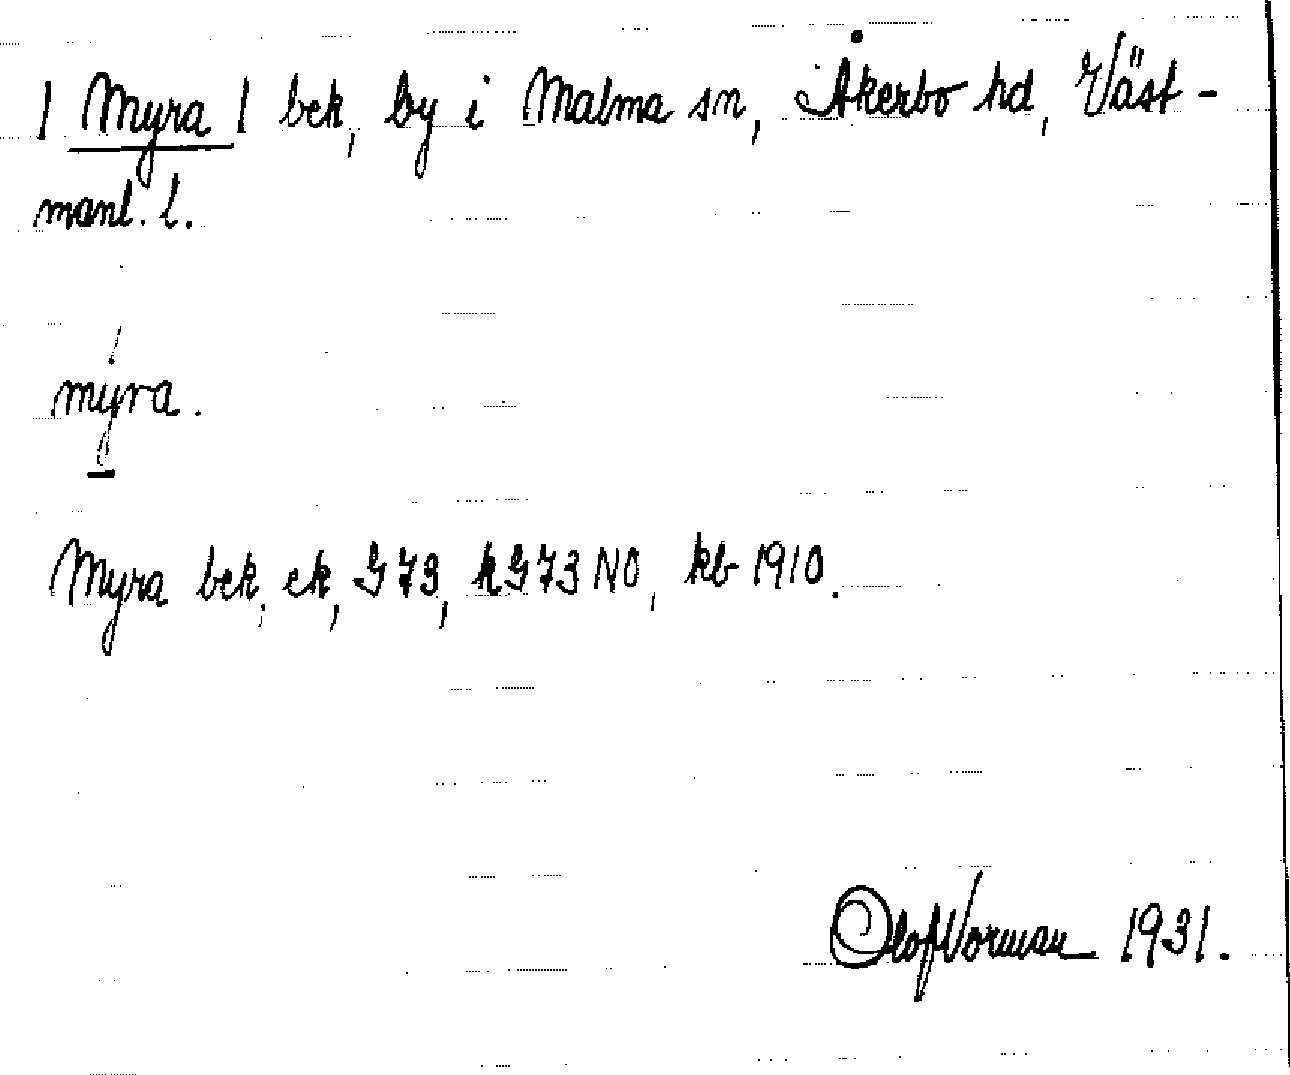 | Myra | bek, by i Malma sn, Åkerbo hd, Väst-
manl. l.
mý̱ra.
Myra bek, ek, G73, kG73 NO, kb 1910.
Olof Vorman 1931.